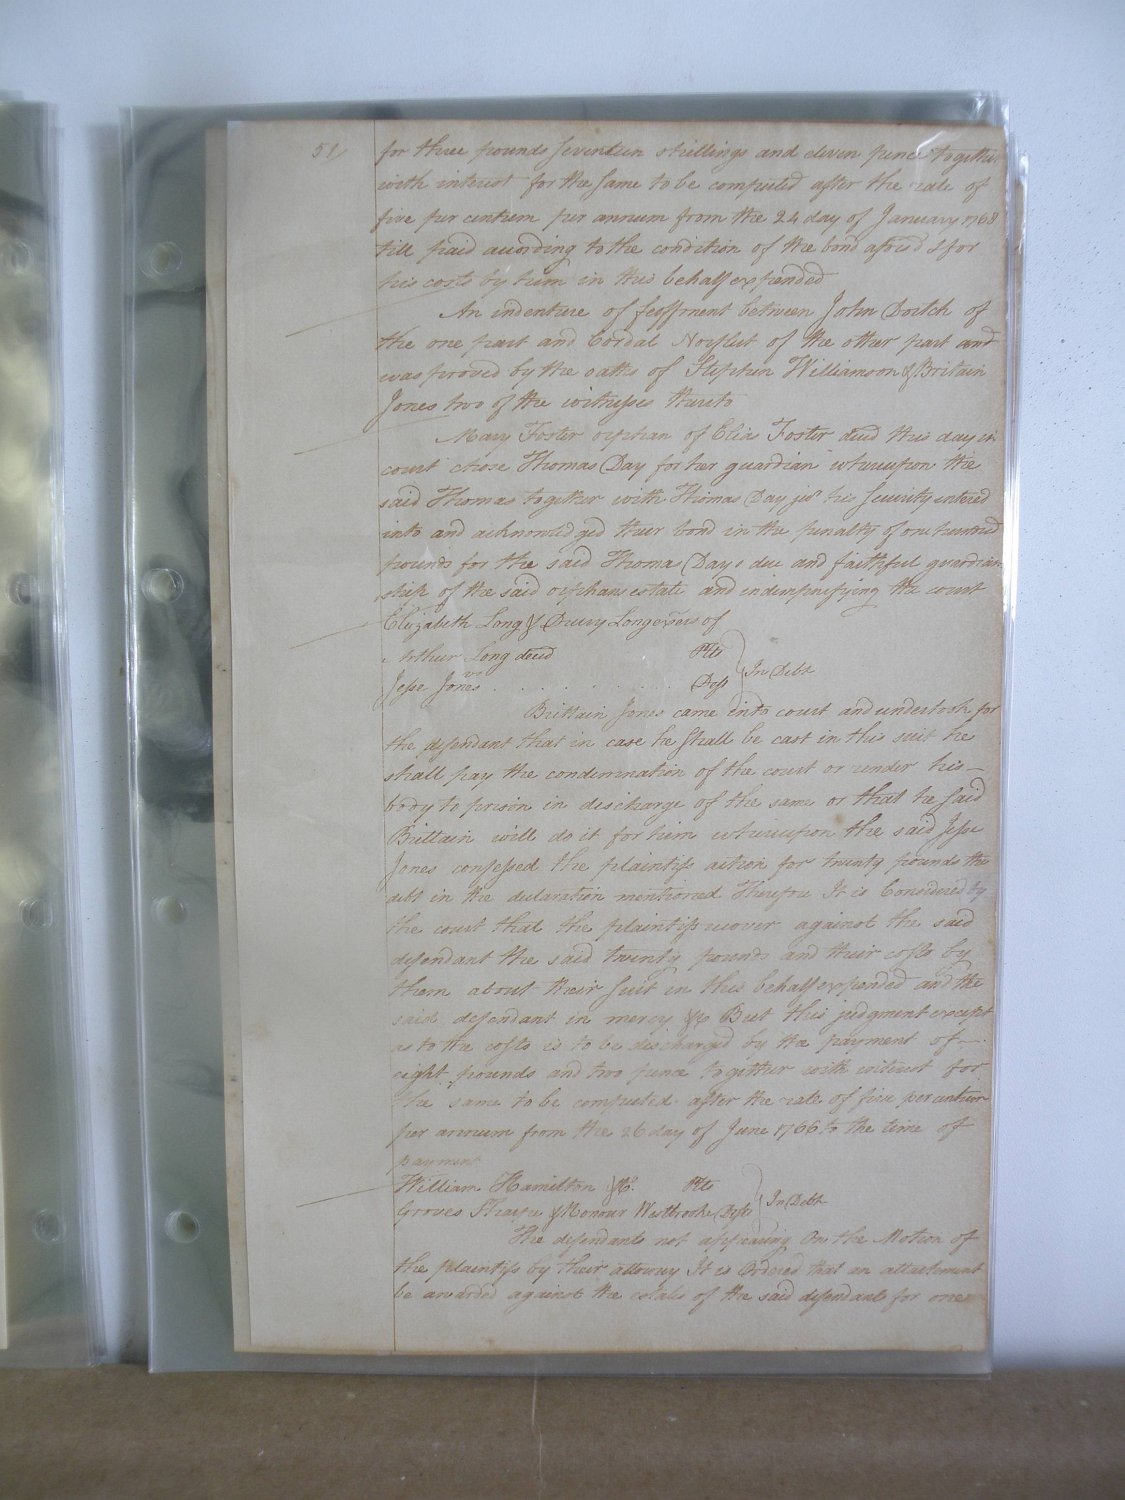 51
for three pounds Seventeen shillings and eleven pence together
with interest for the Same to be computed after the rate of
five per centum per annum from the 24 day of January 1768
till paid according to the condition of the bond aforesd & for
his costs by him in this behalf expended
An indenture of feoffment between John Dortch of
the one part and Cordal Norfleet of the other part and
was proved by the oaths of Stephen Williamson & Britain
Jones two of the witnesses thereto
Mary Foster orphan of Elias Foster decd this day in
court chose Thomas Day for her guardian whereupon the
said Thomas together with Thomas Day jr his Security entered
into and acknowledged their bond in the penalty of one hundred
pounds for the said Thomas Days due and faithful guardian
ship of the said orphans estate and indemnifying the court
Elizabeth Long & Drury Long exers of
Arthur Long decd Plts
vs
Jesse Jones Deft } In Debt
Brittain Jones came into court and undertook for
the defendant that in case he Shall be cast in this suit he
shall pay the condemnation of the court or render his
body to prison in discharge of the same or that he Said
Brittain will do it for him whereupon the said Jesse
Jones confessed the plaintifs action for twenty pounds the
debt in the declaration mentioned Therefore It is Considered by
the court that the plaintifs recover against the said
defendant the said twenty pounds and their costs by
them about their Suit in this behalf expended and the
said defendant in mercy &c But this judgment except
as to the costs is to be discharged by the payment of
eight pounds and two pence together with interest for
the same to be computed after the rate of five per centum
per annum from the 26 day of June 1766 to the time of
payment
William Hamilton & Co. Plts
Groves Tharpe & Honour Westbrooke Defts } In Debt
The defendants not appearing On the Motion of
the plaintifs by their attorney It is Ordered that an attachment
be awarded against the estates of the said defendants for one